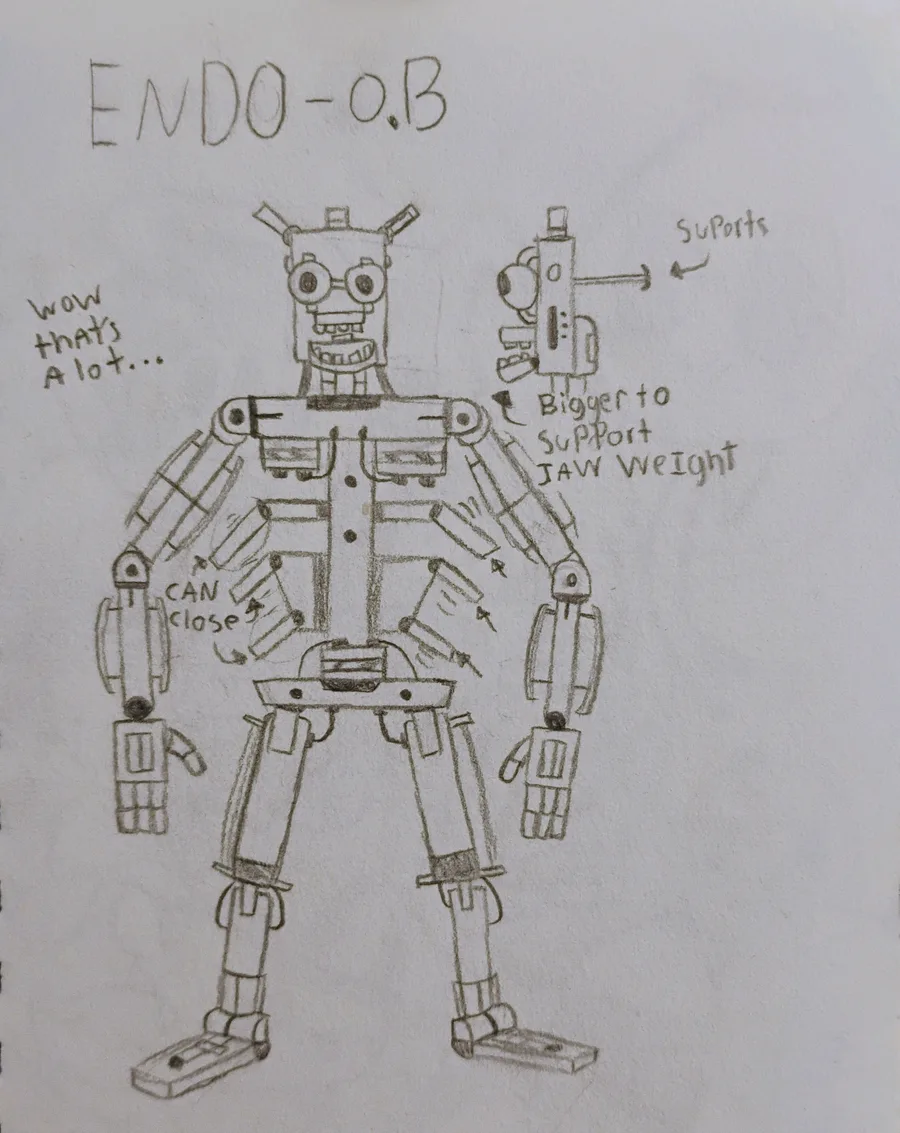 ENDO-O.B
SuPorts
wow
that's
A lot...
Bigger to
SuPPort
JAW WeIght
CAN
close